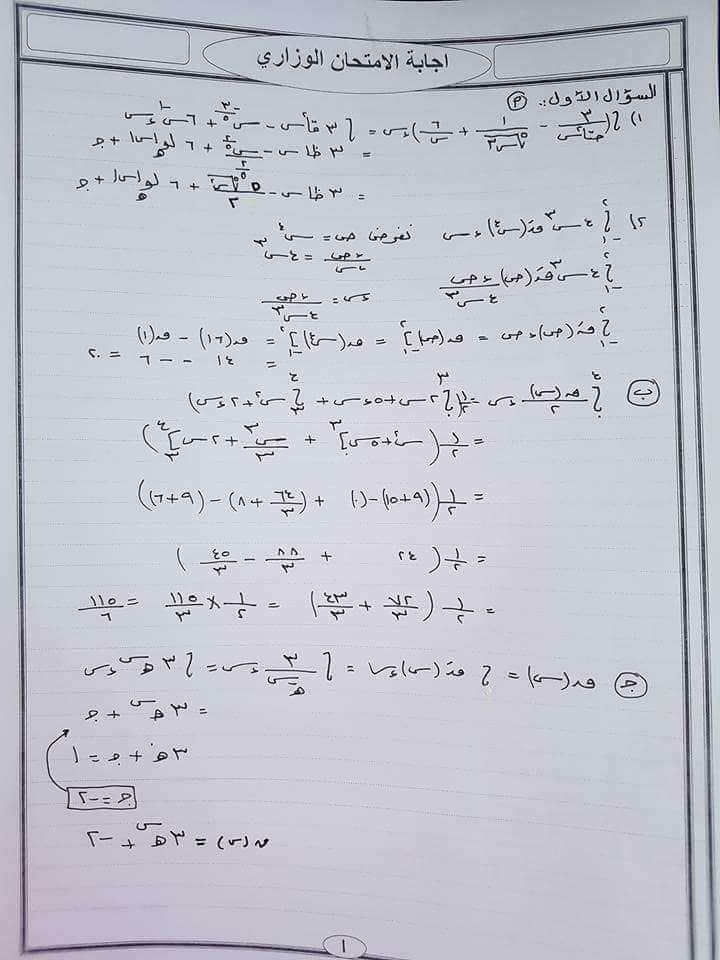 اجابة الامتحان الوزاري
السؤال الأول .. (P)
١) ∫(٣/جتا٢س − ١/٥√س٣ + ٦/س)ءس = ∫ ٣ قا٢س − س^(−٣/٥) + ٦س^(−١) ءس
= ٣ ظاس − س^(٢/٥)/(٢/٥) + ٦ لو_ه|س| + جـ
= ٣ ظاس − ٥ ٥√س٢/٢ + ٦ لو_ه|س| + جـ
٢) ∫_(−١)^٢ ٤س٣ قَ(س٤) ءس نفرض ص = س٤
ءص/ءس = ٤س٣
∫_(−١)^٢ ٤س٣ قَ(ص) ءص/٤س٣ ءس = ءص/٤س٣
∫_(−١)^٢ قَ(ص) ءص = ق(ص)]_(−١)^٢ = ق(س٤)]_(−١)^٢ = ق(١٦) − ق(١)
= ١٤ − −٦ = ٢٠
(ب) ∫^٤ ق(س)/٢ ءس = ١/٢(∫^٣ ٢س+٥ ءس + ∫_٣^٤ س٢+٢ ءس)
= ١/٢(س٢+٥س]^٣ + س٣/٣+٢س]_٣^٤)
= ١/٢((٩+١٥)−(٠) + (٦٤/٣+٨) − (٩+٦))
= ١/٢(٢٤ + ٨٨/٣ − ٤٥/٣)
= ١/٢(٧٢/٣ + ٤٣/٣) = ١/٢ × ١١٥/٣ = ١١٥/٦
(جـ) ق(س) = ∫ قَ(س)ءس = ∫ ٣/ه^(−س) ءس = ∫ ٣ه^س ءس
= ٣ه^س + جـ
٣ه^٠ + جـ = ١
جـ = −٢
ق(س) = ٣ه^س + −٢
١